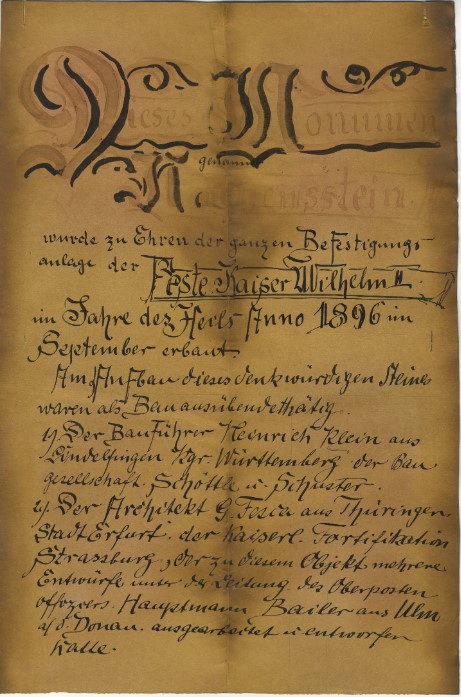 Dieses Monument
genannt
wurde zu Ehren der ganzen Befestigungs
anlage der Feste Kaiser Wilhelm II.
im Jahre des Heils Anno 1896 im
September erbaut.
Am Aufbau dieses denkwürdigen Steines
waren als Bauausübende thätig.
1). Der Bauführer Heinrich Klein aus
Sindelfingen Kgr. Württemberg der Bau
gesellschaft Schöttle u. Schuster.
2). Der Architekt G. aus Thüringen
Stadt Erfurt. der Kaiserl. Fortifikation
Strassburg, der zu diesem Objekt mehrere
Entwürfe unter der Leitung des Oberposten
offiziers. Hauptmann Bailer aus Ulm
a/d Donau. ausgearbeitet u entworfen
hatte.